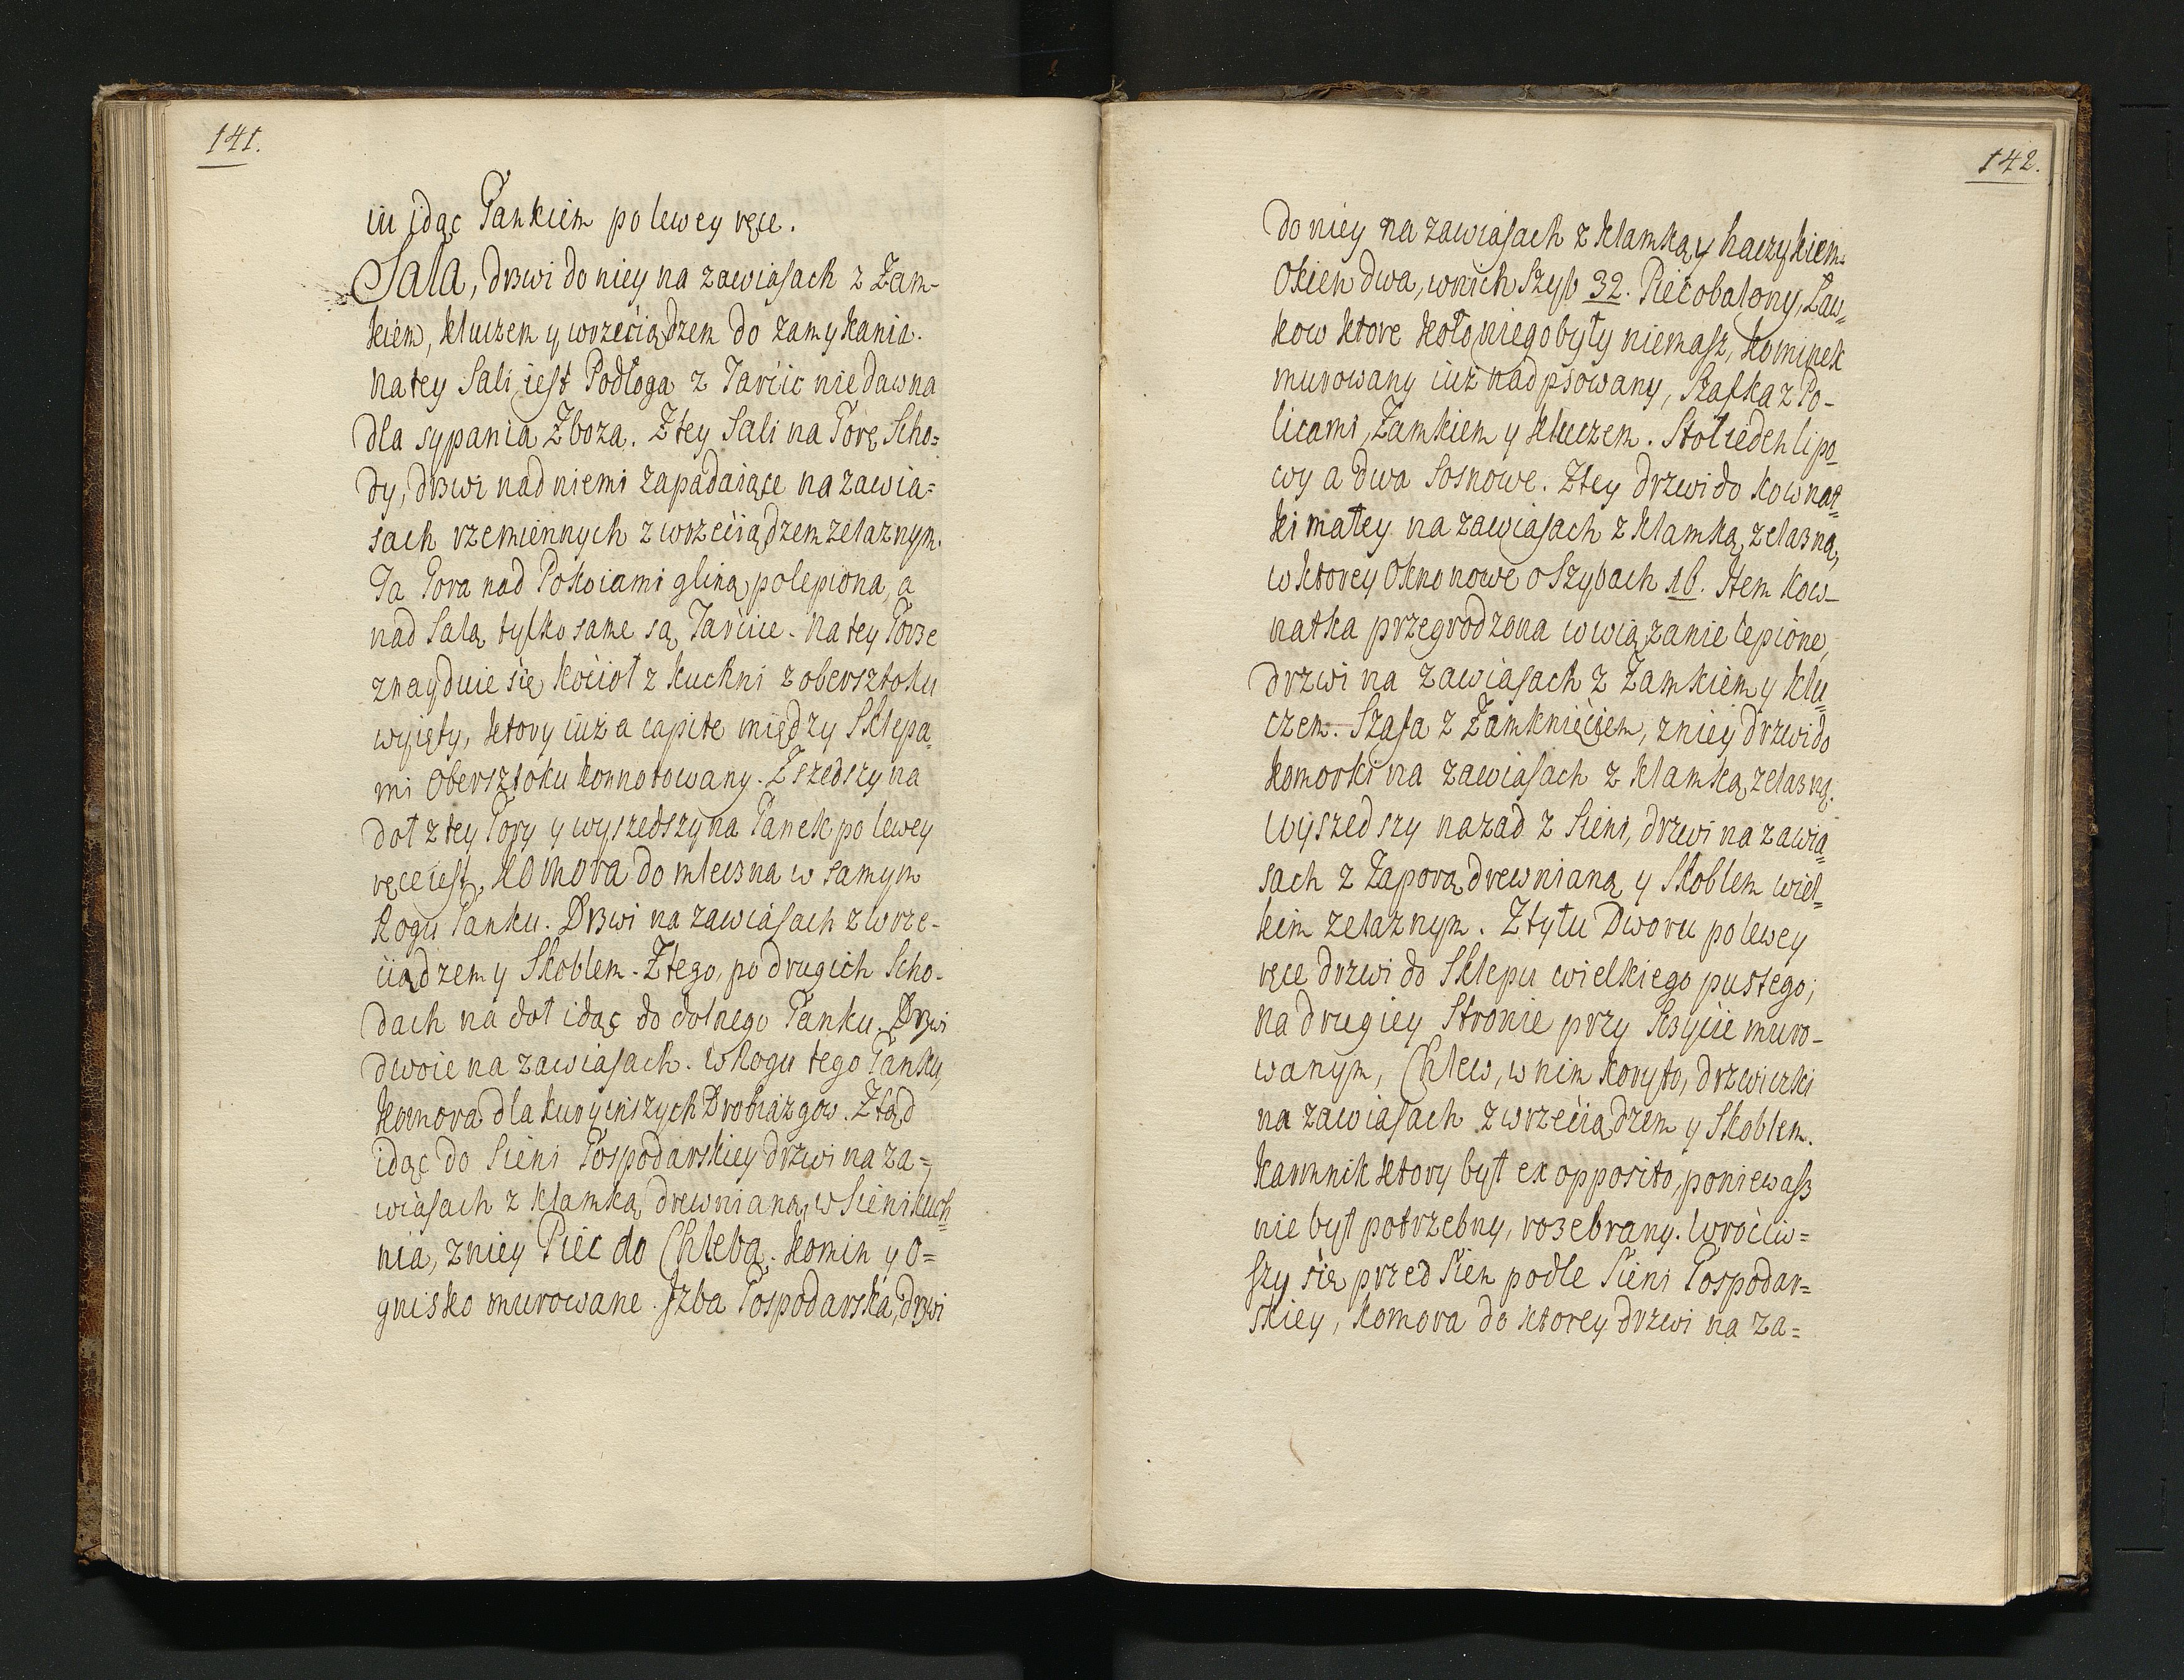 141.
iu idąc Gankiem po lewey ręce.
Sala, drzwi do niey na zawiasach z Zam-
kiem, kluczem y wrzeciądzem do zamykania.
na tey Sali iest Podłoga z Tarcic niedawna
dla sypania Zboza. Z tey Sali na Gorę Scho=
dy, drzwi nad niemi zapadaiące na zawia=
sach rzemiennych z wrzeciądzem zelaznym.
Ta Gora nad Pokoiami gliną polepiona, a
nad Salą tylko same są Tarcice. Na tey Gorze
znayduie się kocioł z kuchni z obersztoku
wyięty, ktory iuż a capite między Sklepa=
mi Obersztoku konnotowany. Zszedszy na
doł z tey Gory y wyszedszy na Ganek po lewey
ręce iest. Komora do mleczna w samym
Rogu Ganku. Drzwi na zawiasach z wrze-
ciądzem y Skoblem. Z tego, po drugich Scho-
dach na doł idąc do dolnego Ganku. Drzwi
dwoie na zawiasach. W Rogu tego Ganku,
komora dla kurycńszych Drobiazgow. Ztąd
idąc do Sieni Gospodarskiey drzwi na za=
wiasach z klamką drewnianą, w Sieni kuch=
nia, z niey Piec do Chleba. Komin y O=
gnisko murowane. Izba Gospodarska, drzwi
142.
do niey na zawiasach z klamką y haczykiem.
Okien dwa, w nich Szyb 32. Piec obalony, Ław=
kow ktore koło niego były niemasz, kominek
murowany iuż nadpsowany, Szafka z Po-
licami, Zamkiem y kluczem. Stoł ieden lipo=
wy a dwa Sosnowe. Z tey drzwi do kownat=
ki małey na zawiasach z klamką zelazną,
w ktorey Okno nowe o Szybach 16. Item kow-
natka przegrodzona w wiązanie lepione,
drzwi na zawiasach z Zamkiem y klu=
czem. Szafa z Zamknięciem, z niey drzwi do
komorki na zawiasach z klamką zelazną.
Wyszedszy nazad z Sieni, drzwi na zawia=
sach z Zaporą drewnianą y Skoblem wiel=
kim zelaznym. Z tyłu Dworu po lewey
ręce drzwi do Sklepu wielkiego pustego;
na drugiey Stronie przy Szycie muro-
wanym, Chlew, w nim koryto, drzwiczki
na zawiasach z wrzeciądzem y Skoblem.
Karmnik ktory był ex opposito, poniewasz
nie był potrzebny, rozebrany. Wrociw=
szy się przed Sień podle Sieni Gospodar=
skiey, komora do ktorey drzwi na za=